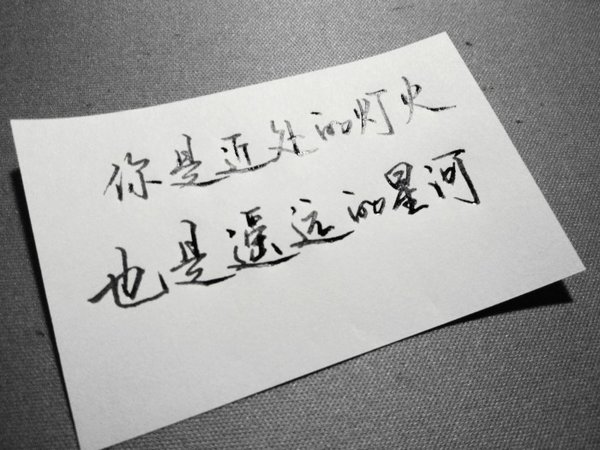 你是近处的灯火
也是遥远的星河